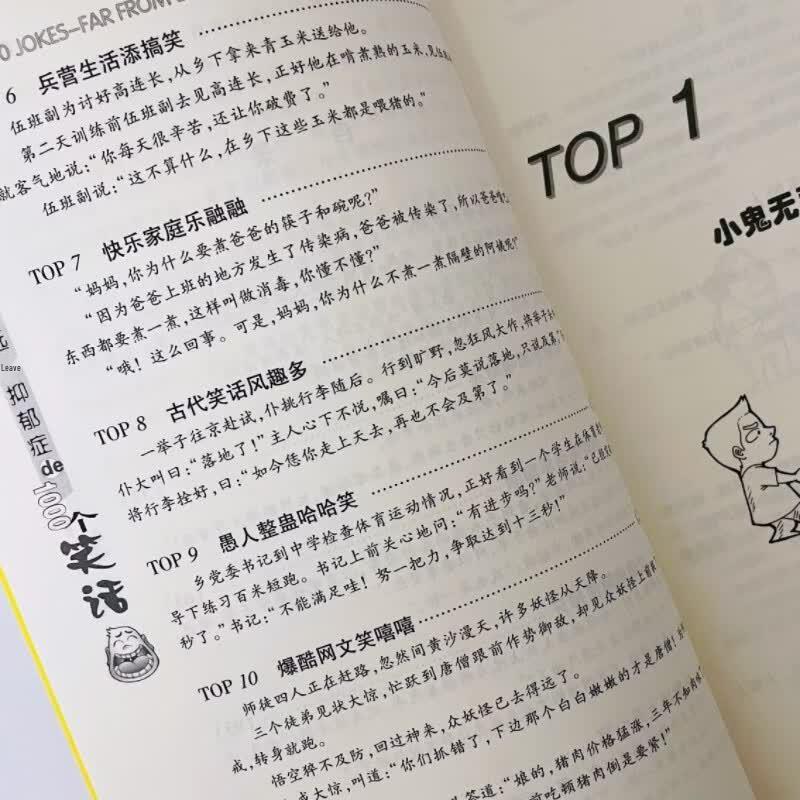 0 JOKES—FAR FROM
6 兵营生活添搞笑
伍班副为讨好高连长,从乡下拿来青玉米送给他。
第二天训练前伍班副去见高连长,正好他在啃煮熟的玉米,见伍
就客气地说:“你每天很辛苦,还让你破费了。”
伍班副说:“这不算什么,在乡下这些玉米都是喂猪的。”
TOP 7 快乐家庭乐融融
“妈妈,你为什么要煮爸爸的筷子和碗呢?”
“因为爸爸上班的地方发生了传染病,爸爸被传染了,所以爸爸
东西都要煮一煮,这样叫做消毒,你懂不懂?”
“哦!这么回事。可是,妈妈,你为什么不煮一煮隔壁的阿姨呢?”
TOP 8 古代笑话风趣多
一举子往京赴试,仆挑行李随后。行到旷野,忽狂风大作,将举子
仆大叫曰:“落地了!”主人心下不悦,嘱曰:“今后莫说落地,只说及第
将行李拴好,曰:“如今恁你走上天去,再也不会及第了。”
TOP 9 愚人整蛊哈哈笑
乡党委书记到中学检查体育运动情况,正好看到一个学生在体育
导下练习百米短跑。书记上前关心地问:“有进步吗?”老师说:“已
秒了。”书记:“不能满足哇!努一把力,争取达到十三秒!”
TOP 10 爆酷网文笑嘻嘻
师徒四人正在赶路,忽然间黄沙漫天,许多妖怪从天降。
三个徒弟见状大惊,忙跃到唐僧跟前作势御敌,却见众妖怪上前
戒,转身就跑。
悟空猝不及防,回过神来,众妖怪已去得远了。
戒大惊,叫道:“你们抓错了,下边那个白白嫩嫩的才是唐僧!
答道:“娘的,猪肉价格猛涨,三年不知肉味
前吃顿猪肉倒是要紧!”
Leave
抑郁症de
1000
个笑话
TOP 1
小鬼无